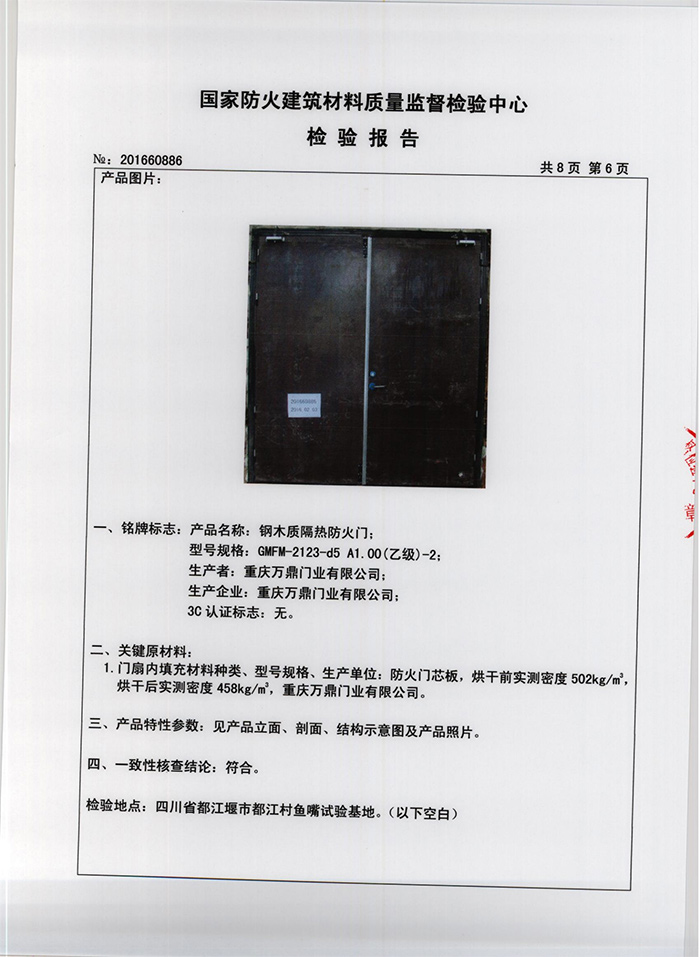 国家防火建筑材料质量监督检验中心
检验报告
№：201660886
共8页 第6页
产品图片：
一、铭牌标志：产品名称：钢木质隔热防火门；
型号规格：GMFM-2123-d5 A1.00(乙级)-2；
生产者：重庆万鼎门业有限公司；
生产企业：重庆万鼎门业有限公司；
3C认证标志：无。
二、关键原材料：
1.门扇内填充材料种类、型号规格、生产单位：防火门芯板，烘干前实测密度502kg/m³，
烘干后实测密度458kg/m³，重庆万鼎门业有限公司。
三、产品特性参数：见产品立面、剖面、结构示意图及产品照片。
四、一致性核查结论：符合。
检验地点：四川省都江堰市都江村鱼嘴试验基地。（以下空白）
章